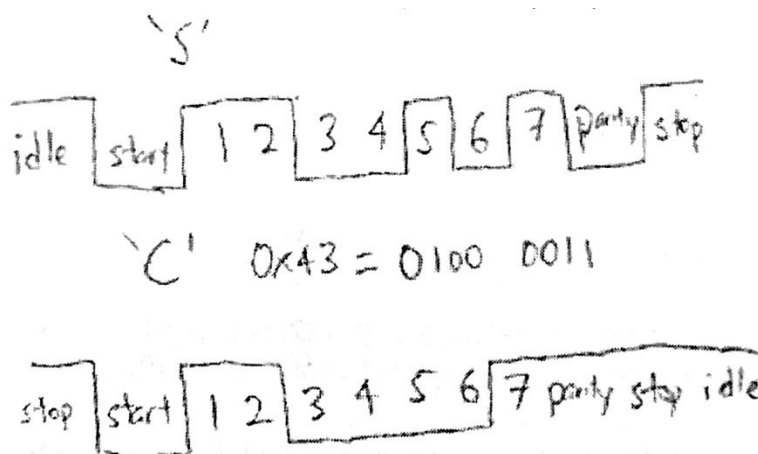 'S'
idle start 1 2 3 4 5 6 7 parity stop
'C' 0x43 = 0100 0011
stop start 1 2 3 4 5 6 7 parity stop idle